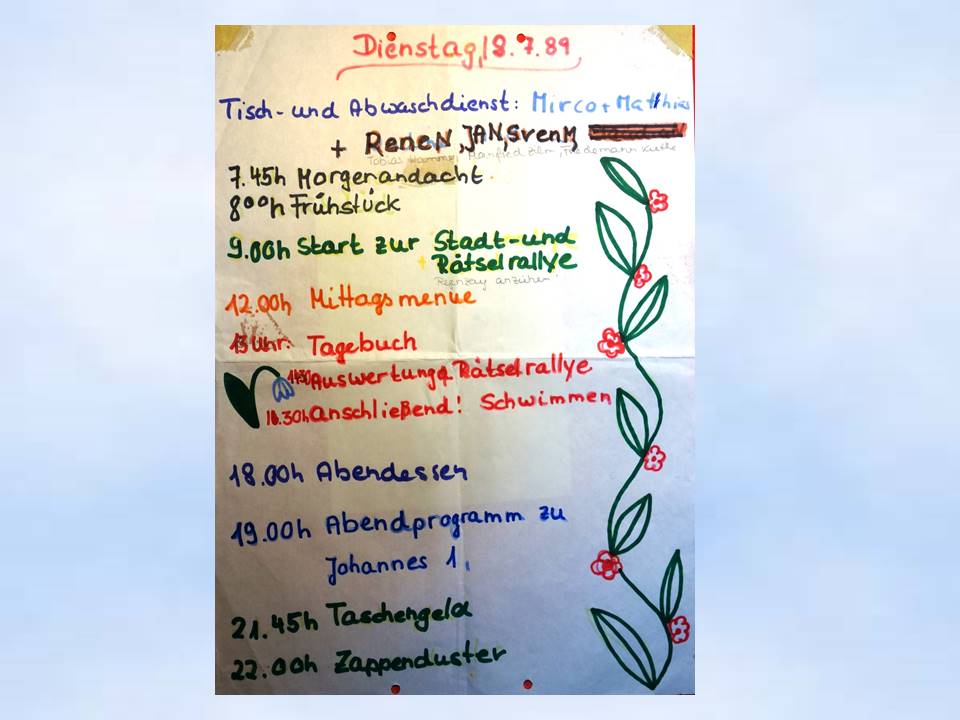 Dienstag, 18.7.89
Tisch- und Abwaschdienst: Mirco + Matthias
+ Rene N, JAN, Sven M,
7.45h Morgenandacht
8ººh Frühstück
9.00h Start zur Stadt- und
Rätselrallye
anziehen!
12.00h Mittagsmenue
13 Uhr: Tagebuch
14.30 Auswertung d. Rätselrallye
16.30h anschließend! Schwimmen
18.00h Abendessen
19.00h Abendprogramm zu
Johannes 1.
21.45h Taschengeld
22.00h Zappenduster